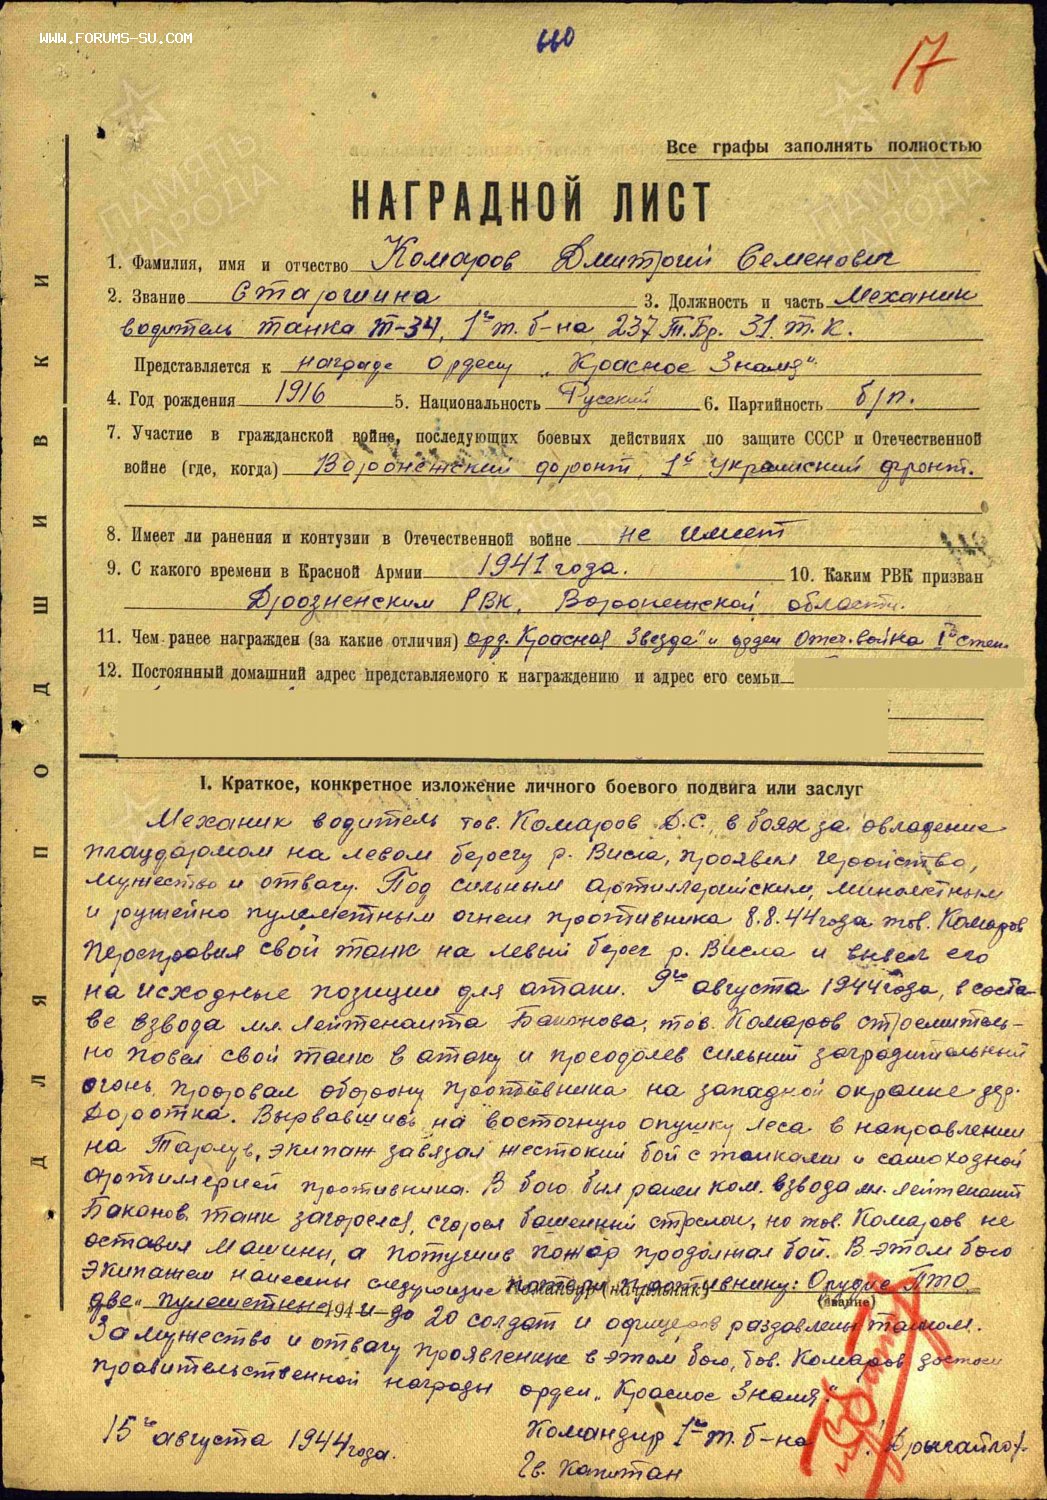 WWW.FORUMS-SU.COM
110
17
Все графы заполнять полностью
НАГРАДНОЙ ЛИСТ
1. Фамилия, имя и отчество Комаров Дмитрий Семенович
2. Звание Старшина 3. Должность и часть Механик
водитель танка Т-34, 1й т. б-на 237 Т.Бр. 31. Т.К.
Представляется к награде ордену „Красное Знамя"
4. Год рождения 1916 5. Национальность Русский 6. Партийность б/п.
7. Участие в гражданской войне, последующих боевых действиях по защите СССР и Отечественной
войне (где, когда) Воронежский фронт, 1й Украинский фронт.
8. Имеет ли ранения и контузии в Отечественной войне не имеет
9. С какого времени в Красной Армии 1941 года. 10. Каким РВК призван
РВК, Воронежской области.
11. Чем ранее награжден (за какие отличия) орд. Красная Звезда" и орден Отеч. война степ.
12. Постоянный домашний адрес представляемого к награждению и адрес его семьи
ДЛЯ ПОДШИВКИ
ПАМЯТЬ НАРОДА
I. Краткое, конкретное изложение личного боевого подвига или заслуг
Механик водитель тов. Комаров Д.С., в боях за овладение
плацдармом на левом берегу р. Висла, проявил геройство,
мужество и отвагу. Под сильным артиллерийским, минометным
и ружейно пулеметным огнем противника 8.8.44 года тов. Комаров
переправил свой танк на левый берег р. Висла и вывел его
на исходные позиции для атаки. 9го августа 1944 года, в соста-
ве взвода мл. лейтенанта Баканова, тов. Комаров стремитель-
но повел свой танк в атаку и преодолев сильный заградительный
огонь, прорвал оборону противника на западной окраине дер.
Доротка. Вырвавшись на восточную опушку леса в направлении
на экипаж завязал жестокий бой с танками и самоходной
артиллерией противника. В бою был ранен ком. взвода мл. лейтенант
Баканов, танк загорелся, сгорел башенный стрелок, но тов. Комаров не
оставил машины, а потушив пожар продолжал бой. В этом бою
экипажем нанесены следующие потери противнику: Орудие ПТО
Командир (начальник)
(звание)
две, пулеметные и до 20 солдат и офицеров раздавлены танком.
194
За мужество и отвагу проявленные в этом бою, тов. Комаров достоин
правительственной награды орден „Красное Знамя".
15го августа 1944 года.
Командир 1го т. б-на
Гв. капитан